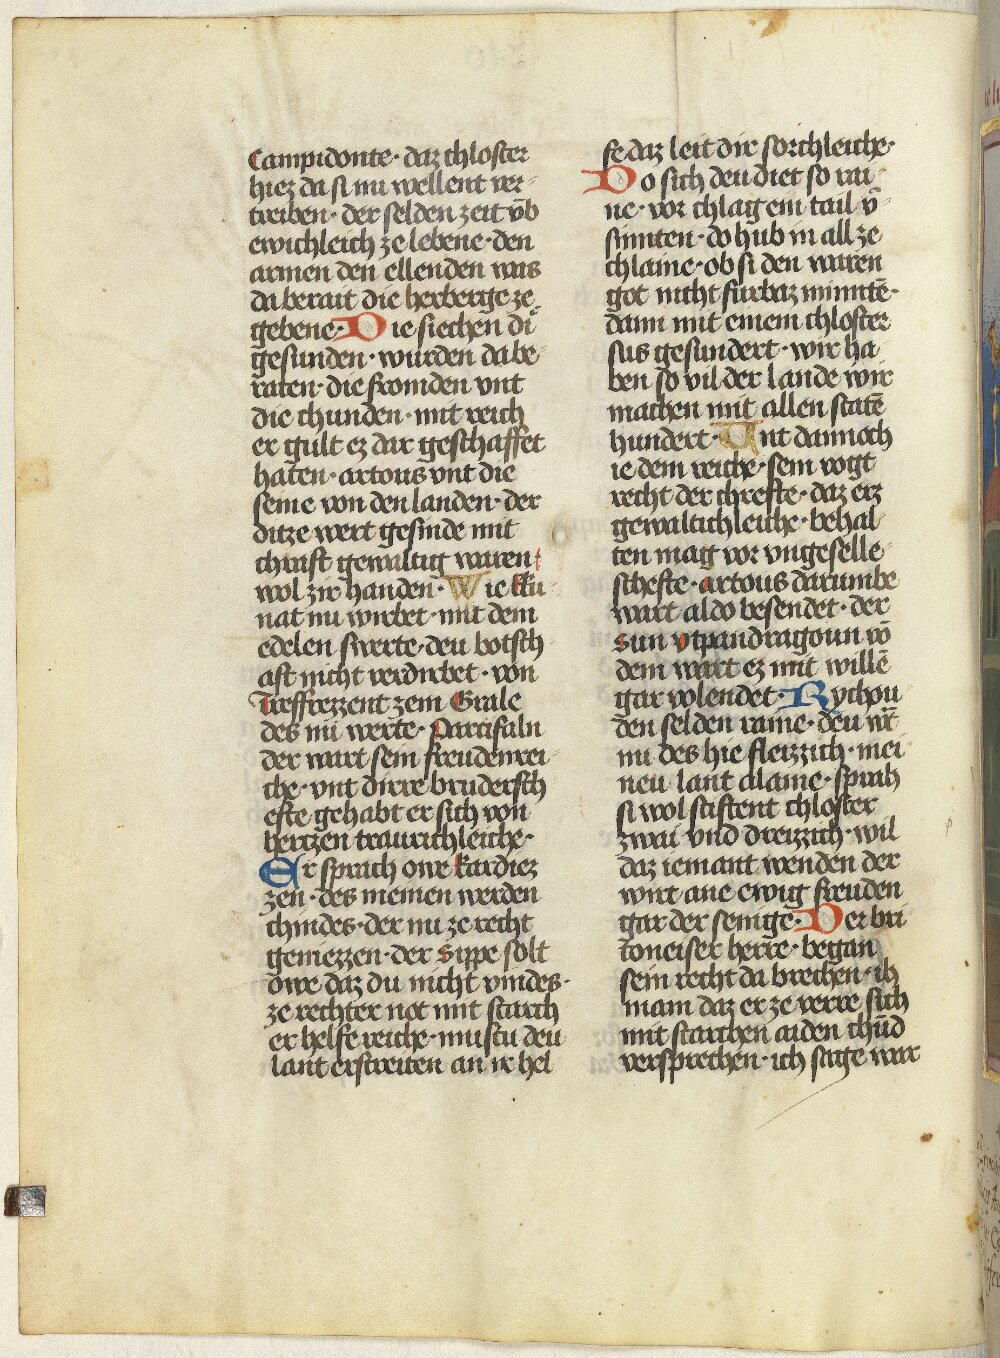 Campidonte· daz chloster
hiez da si nu wellent ver-
treiben· der selden zeit vn̄b
ewichleich ze lebene· den
armen den ellenden was
da berait die herberge ze
gebene· Die siechen di
gesunden· wurden da be-
raten· die fromden vnt
die chunden· mit reich
er gult ez dar geschaffet
haten· artous vnt die
seine von den landen· der
ditze wert gesinde mit
chraft gewaltig waren
wol zir handen· Wie kū
nat nu wirbet· mit dem
edelen swerte· deu botsch
aft nicht verdirbet· von
Treffrezzent zem Grale
des mī werte· Parcifaln
der wart sein freudenrei
che· vnt dirre brudersch
efte gehabt er sich von
hertzen traurichleiche·
Er sprach owe kardiez
zen· des meinen werden
chindes· der nu ze recht
geniezzen· der Sippe solt
owe daz du nicht vindes·
ze rechter not mit starch
er helfe reiche· mustu deu
lant erstreiten an ir hel
fe daz leit dir sorchleiche·
Do sich deu diet so rai-
ne· vor chlag ein tail v̄
sunten· do hub in all ze
chlaine· ob si den waren
got nicht furbaz mintē·
dann mit einem chloster
sus gesundert· wir ha
ben so vil der lande wir
machen mit allen statē
hundert· Vnt dannoch
ie dem reiche· sein vogt
recht der chrefte· daz erz
gewaltichleiche· behal
ten mag vor vngeselle
schefte· artous darumbe
wart aldo besendet· der
sun vtpandragoun vō
dem wart ez mit willē
gar volendet· Rychou
den selden raine· deu wt̄
nu des hie fleizzich· mei
neu lant alaine· sprah
si wol stiftent chloster
zwai vnd dreizzich· wil
daz iemant wenden der
wirt ane ewig freuden
gar der senige· Der bri
toneiser herre· began
sein recht da brechen· ih
main daz er ze verre sich
mit starchen aiden chūd
versprechen· ich sage war